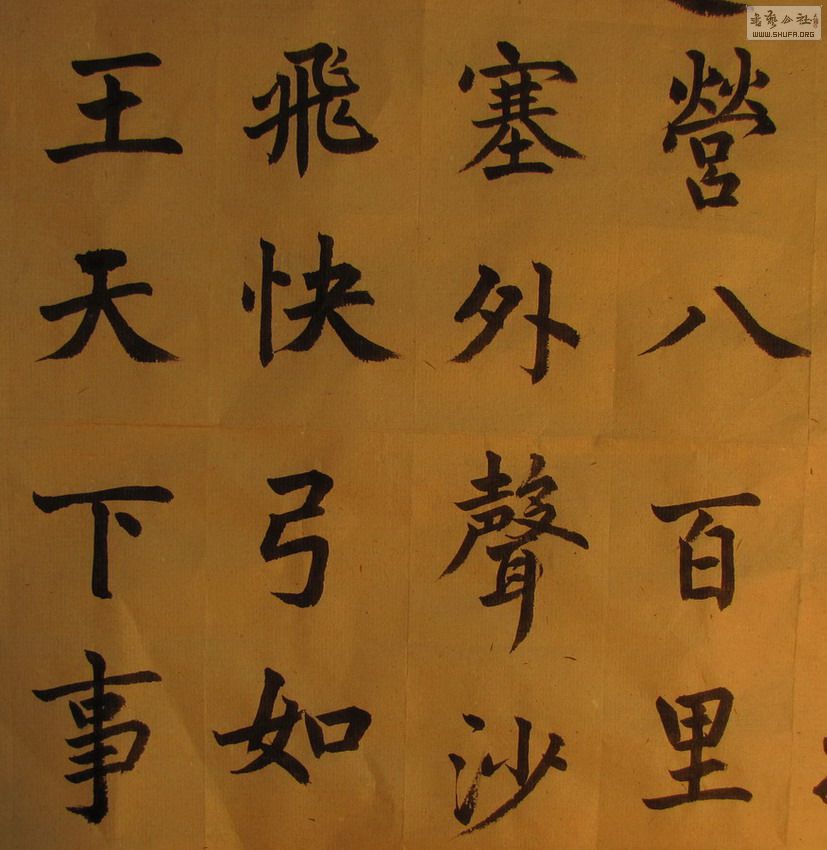 營八百里
塞外聲沙
飛快弓如
王天下事
WWW.SHUFA.ORG